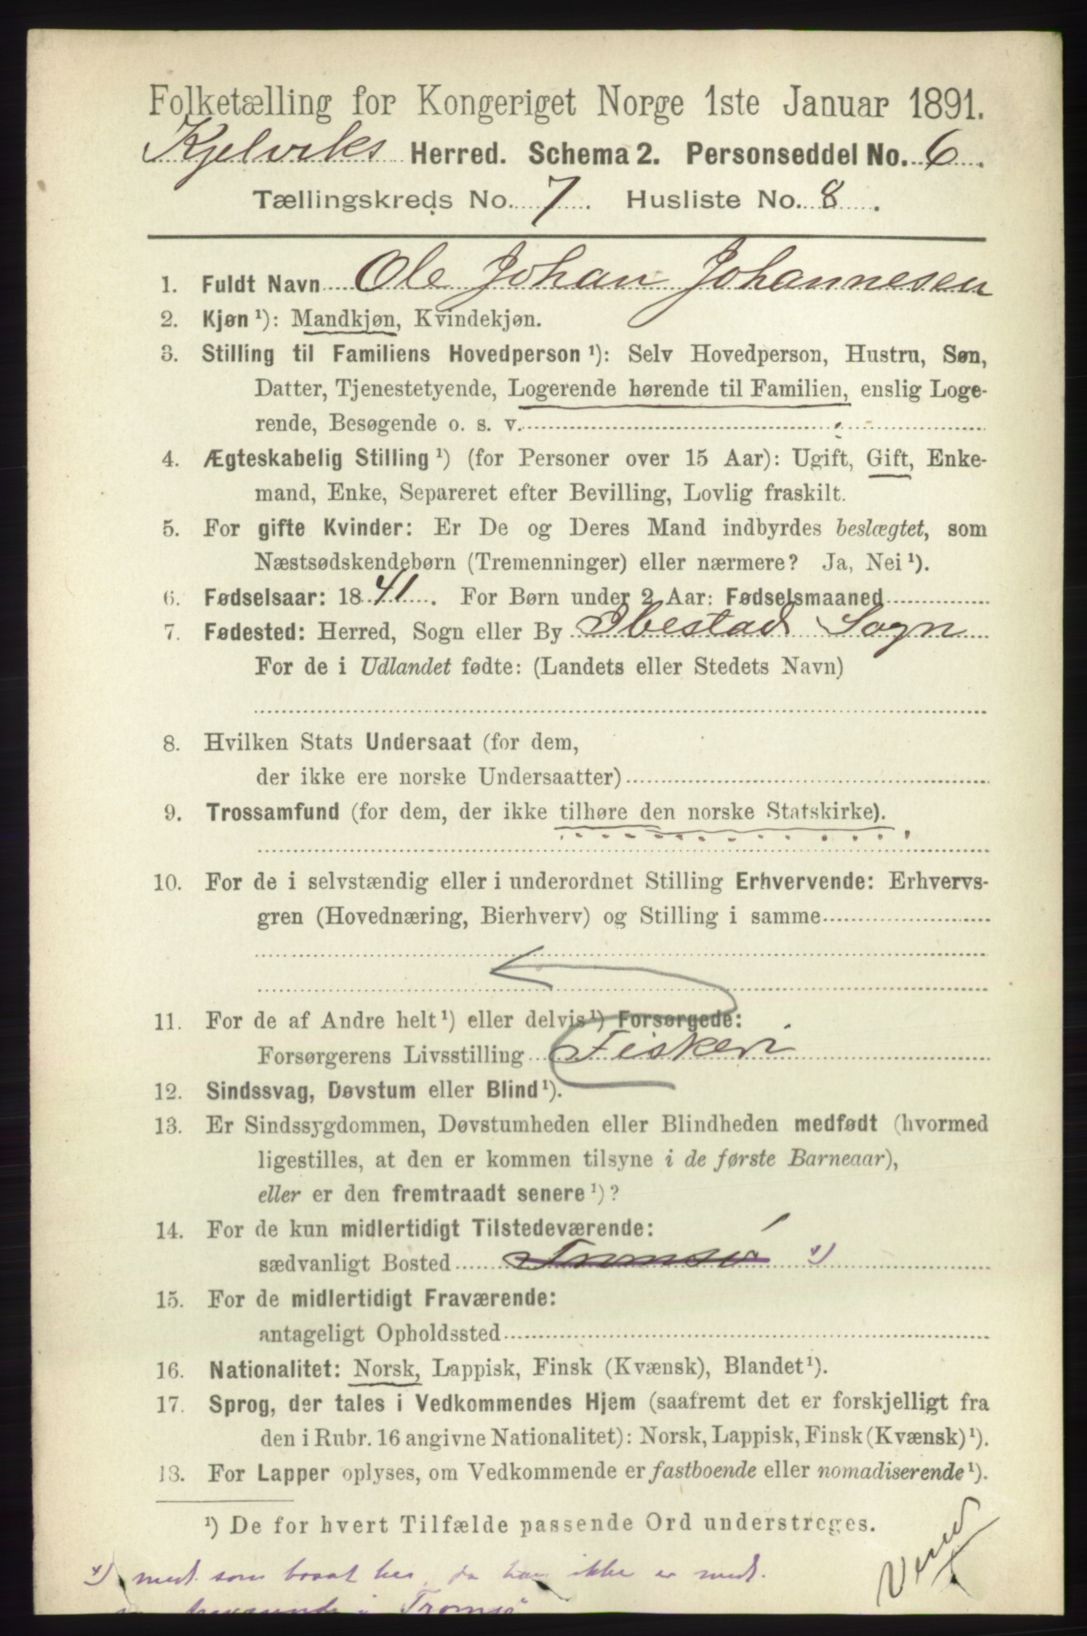 Folketælling for Kongeriget Norge 1ste Januar 1891.
Kjelviks Herred. Schema 2. Personseddel No. 6.
Tællingskreds No. 7. Husliste No. 8.
1. Fuldt Navn Ole Johan Johannesen
2. Kjøn ¹): Mandkjøn, Kvindekjøn.
3. Stilling til Familiens Hovedperson ¹): Selv Hovedperson, Hustru, Søn,
Datter, Tjenestetyende, Logerende hørende til Familien, enslig Loge-
rende, Besøgende o. s. v.
4. Ægteskabelig Stilling ¹) (for Personer over 15 Aar): Ugift, Gift, Enke-
mand, Enke, Separeret efter Bevilling, Lovlig fraskilt.
5. For gifte Kvinder: Er De og Deres Mand indbyrdes beslægtet, som
Næstsødskendebørn (Tremenninger) eller nærmere? Ja, Nei ¹).
6. Fødselsaar: 1841. For Børn under 2 Aar: Fødselsmaaned
7. Fødested: Herred, Sogn eller By Ibestad Sogn
For de i Udlandet fødte: (Landets eller Stedets Navn)
8. Hvilken Stats Undersaat (for dem,
der ikke ere norske Undersaatter)
9. Trossamfund (for dem, der ikke tilhøre den norske Statskirke).
10. For de i selvstændig eller i underordnet Stilling Erhvervende: Erhvervs-
gren (Hovednæring, Bierhverv) og Stilling i samme
11. For de af Andre helt ¹) eller delvis ¹) Forsørgede:
Forsørgerens Livsstilling Fiskeri
12. Sindssvag, Døvstum eller Blind ¹).
13. Er Sindssygdommen, Døvstumheden eller Blindheden medfødt (hvormed
ligestilles, at den er kommen tilsyne i de første Barneaar),
eller er den fremtraadt senere ¹)?
14. For de kun midlertidigt Tilstedeværende:
sædvanligt Bosted Tromsø ˣ)
15. For de midlertidigt Fraværende:
antageligt Opholdssted
16. Nationalitet: Norsk, Lappisk, Finsk (Kvænsk), Blandet ¹).
17. Sprog, der tales i Vedkommendes Hjem (saafremt det er forskjelligt fra
den i Rubr. 16 angivne Nationalitet): Norsk, Lappisk, Finsk (Kvænsk) ¹).
18. For Lapper oplyses, om Vedkommende er fastboende eller nomadiserende ¹).
¹) De for hvert Tilfælde passende Ord understreges.
ˣ) medt. som bosat her, da han ikke er medt.
i Tromsø